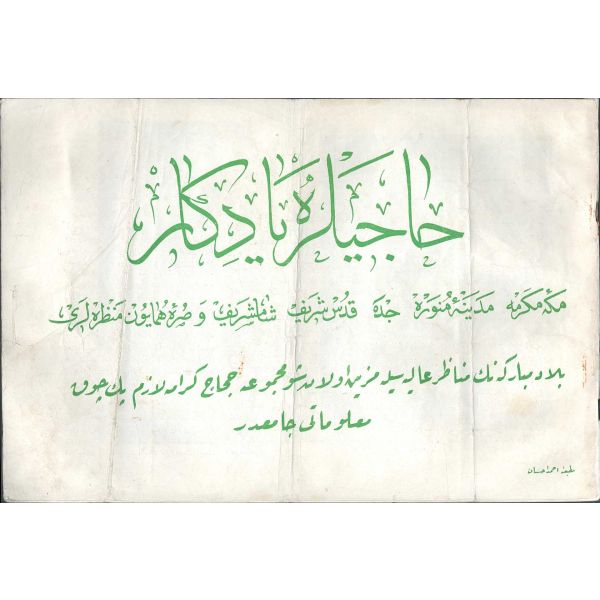 حاجیلره یادكار
مكهٔ مكرمه مدینهٔ منوره جده قدس شریف شامشریف و صرهٔ همایون منظره لری
بلاد مباركه نك مناظر عالیه سیله مزین اولان شو مجموعه حجاج كرامه لازم پك چوق
معلوماتی جامعدر
مطبعهٔ احمد احسان